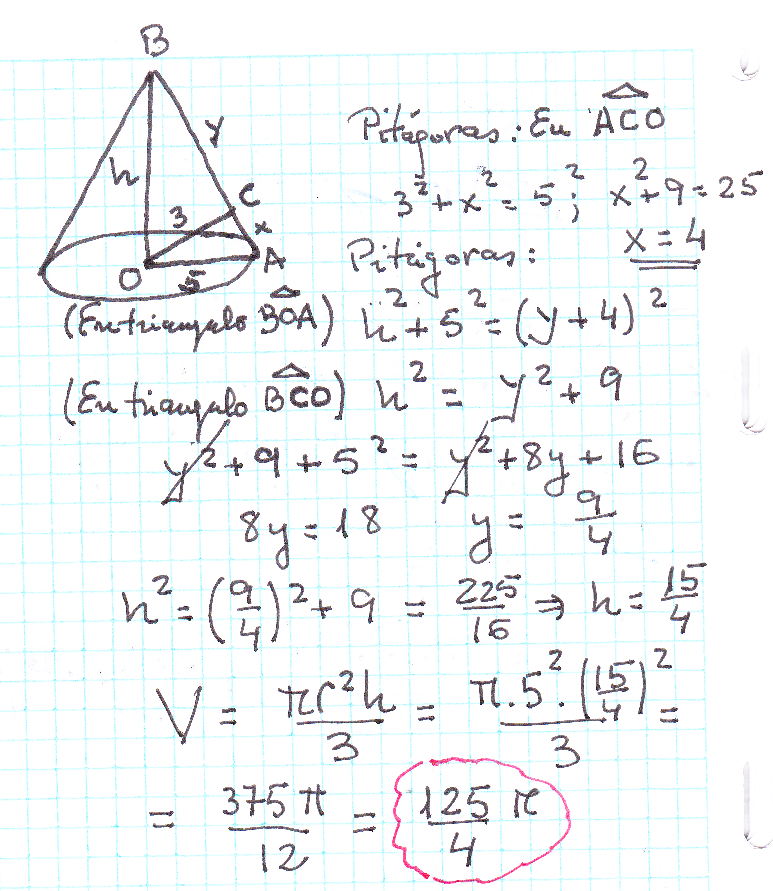 B
y
h
C
3
x
O
5
A
Pitágoras: En ACO
3² + x² = 5²; x² + 9 = 25
x = 4
Pitágoras:
(En triangulo BOA) h² + 5² = (y + 4)²
(En triangulo BCO) h² = y² + 9
y² + 9 + 5² = y² + 8y + 16
8y = 18 y = 9/4
h² = (9/4)² + 9 = 225/16 ⇒ h = 15/4
V = πr²h/3 = π.5².(15/4)²/3 =
= 375π/12 = 125/4 π